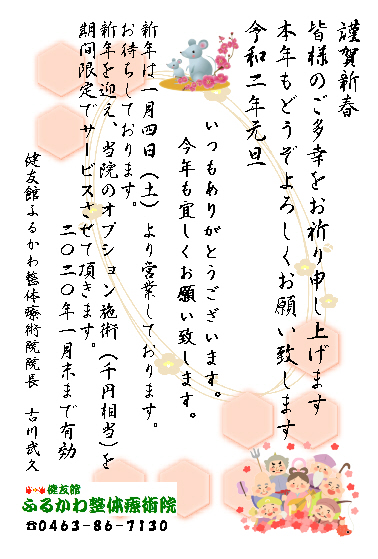 謹賀新春
皆様のご多幸をお祈り申し上げます
本年もどうぞよろしくお願い致します
令和二年元旦
いつもありがとうございます。
今年も宜しくお願い致します。
新年は一月四日（土）より営業しております。
お待ちしております。
新年を迎え、当院のオプション施術（千円相当）を
期間限定でサービスさせて頂きます。
二〇二〇年一月末まで有効
健友館ふるかわ整体療術院院長　古川武久
健友館
ふるかわ整体療術院
☎0463-86-7130